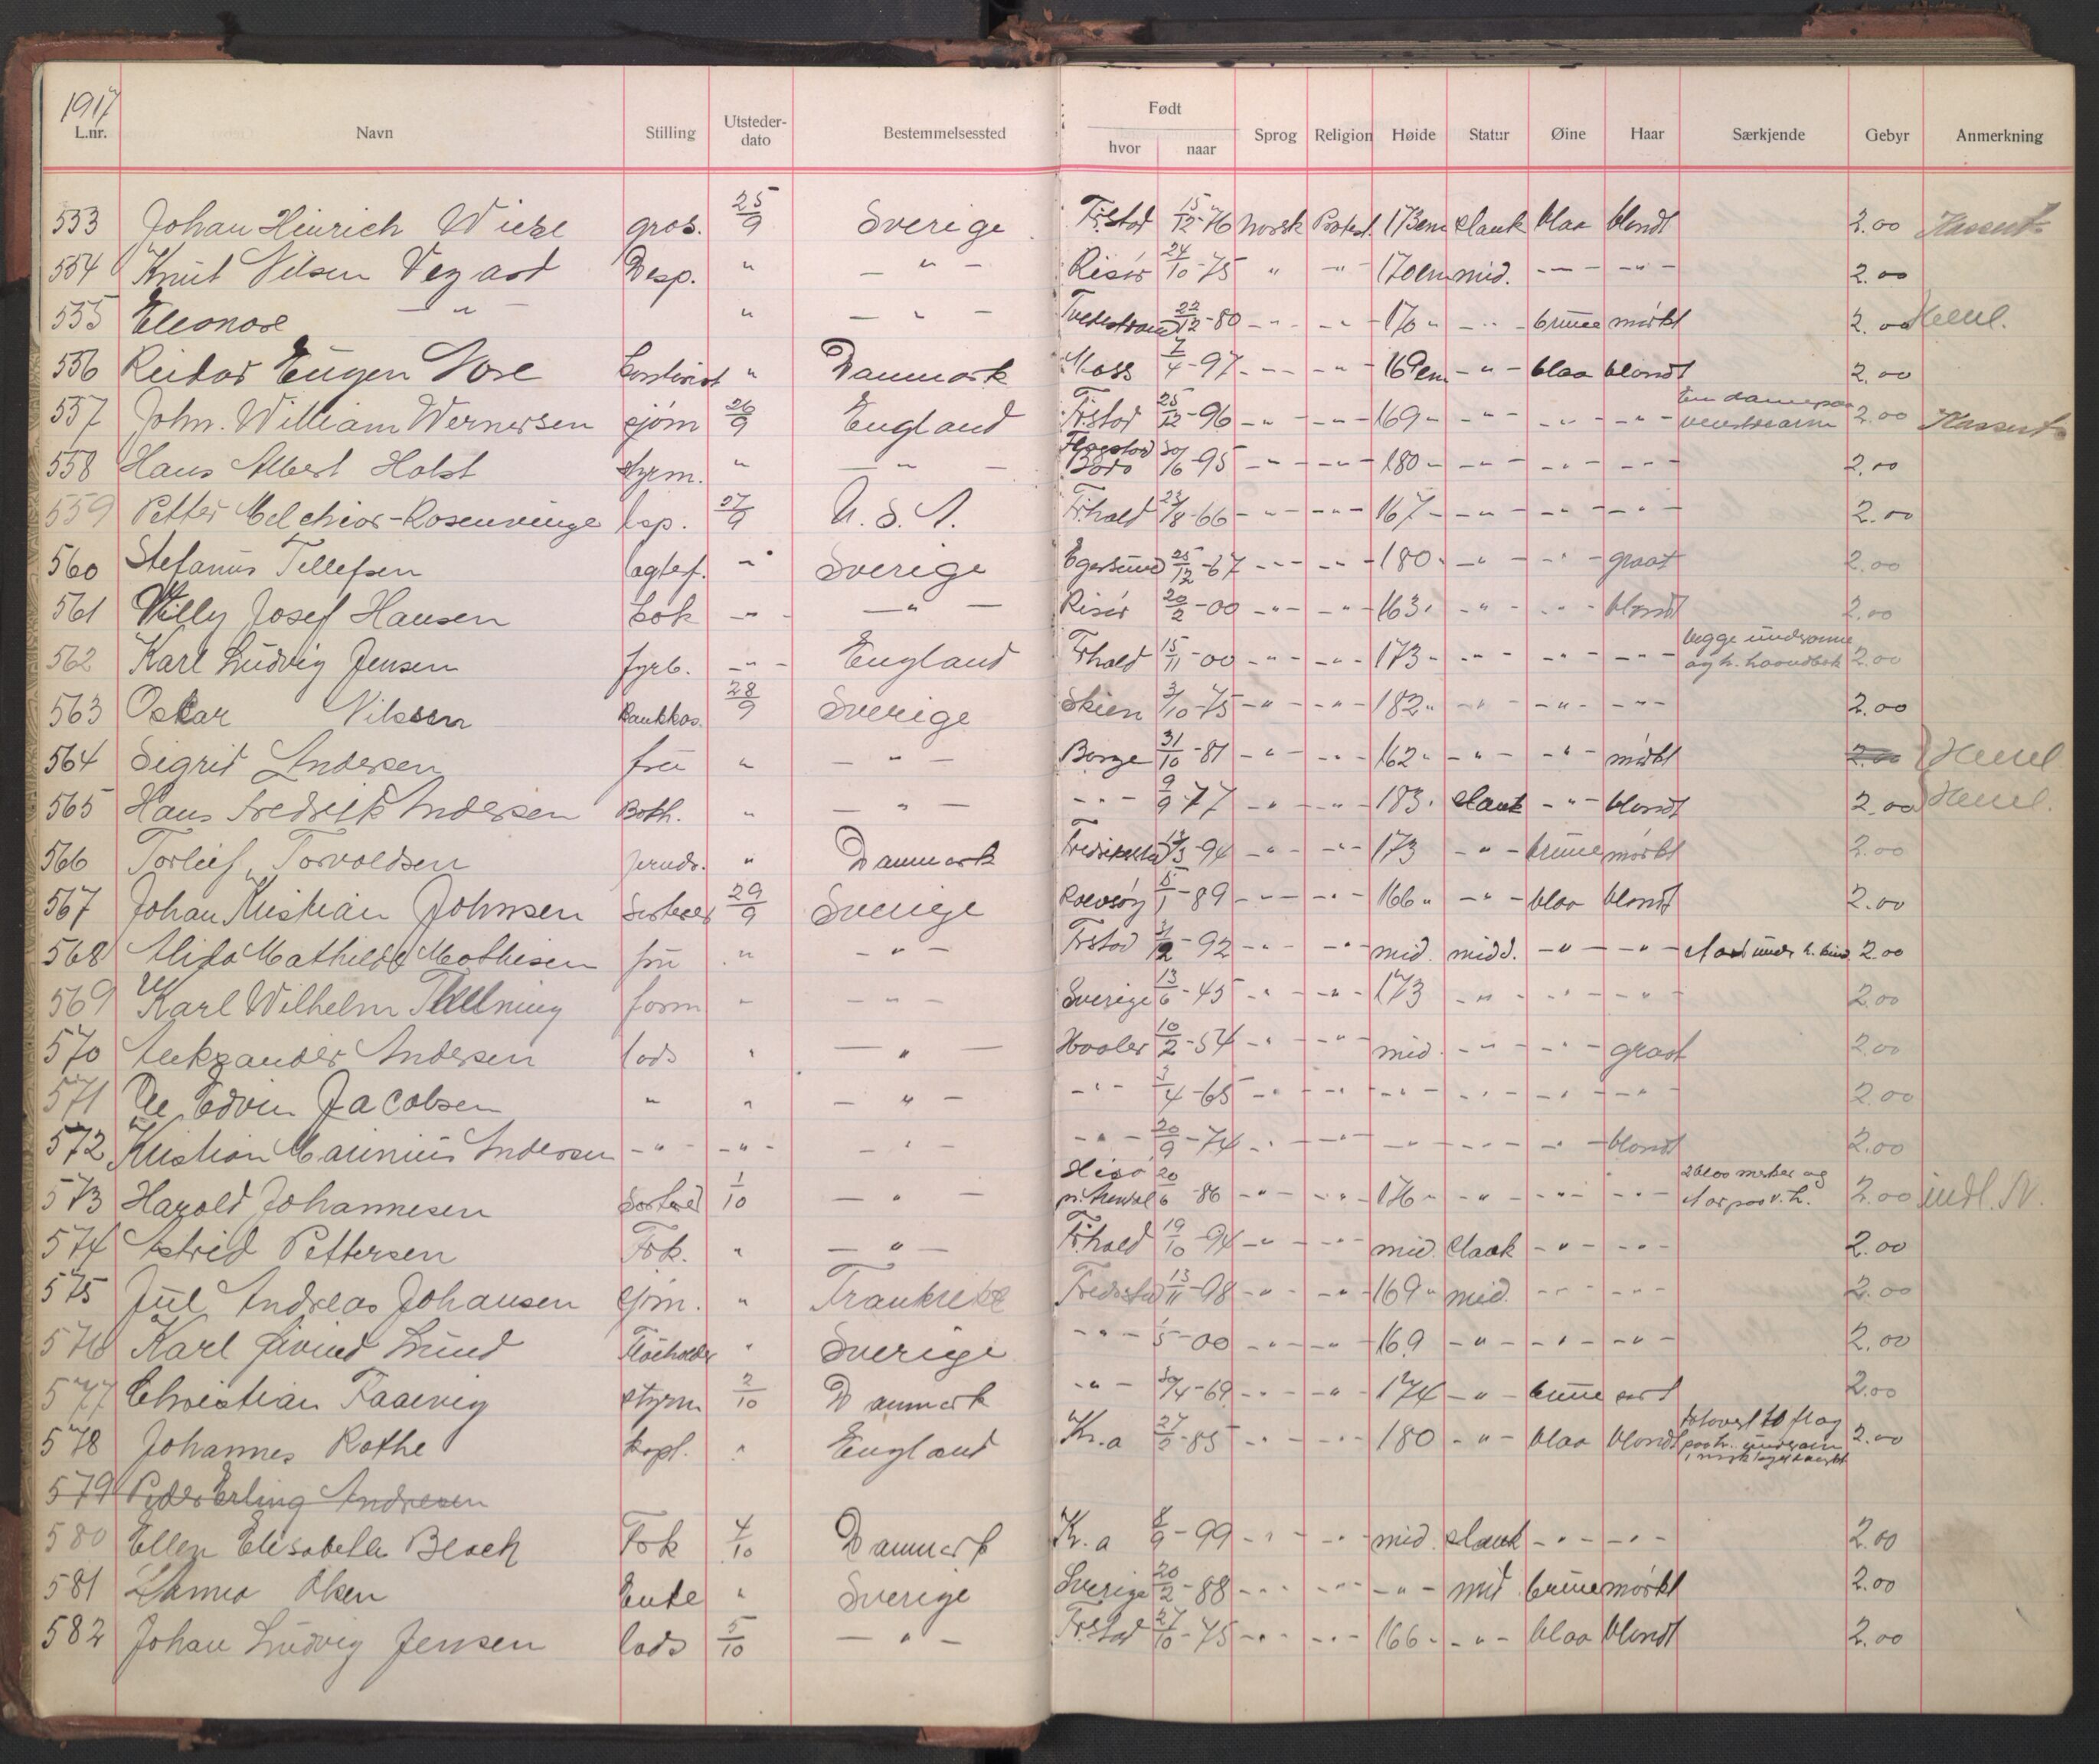 1917
L.nr. Navn Stilling Utsteder-dato Bestemmelsessted Født hvor naar Sprog Religion Høide Statur Øine Haar Særkjende Gebyr Anmerkning
553 Johan Hinrich Wiese gros. 25/9 Sverige Fr.stad 15/12-76 norsk Protest. 173cm slank blaa blondt 2.00 Kassert
554 Knut Nilsen Vegard Desp. " — " — Risør 24/10-75 " -"- 170cm mid. -"- -"- 2.00
555 Eleonore — " — " — " — Tvedestrand 22/12-80 -"- -"- 170 " -"- brune mørkt 2.00 Henl.
556 Reidar Eugen Vose " Danmark Moss 7/4-97 -"- -"- 169cm -"- blaa blondt 2.00
557 John. William Wernersen sjøm 26/9 England Fr.stad 25/12-96 -"- -"- 169 " -"- -"- -"- En dame paa venstre arm 2.00 Kassert
558 Hans Albert Holst styrm. " — " — Bodø 30/6-95 -"- -"- 180 " -"- -"- -"- 2.00
559 Petter Melchior-Rosenvinge lsp. 27/9 U.S.A. Fr.hald 23/8-66 -"- -"- 167 -"- -"- -"- 2.00
560 Stefanus Tellefsen lagtef. -"- Sverige Egersund 25/12-67 -"- -"- 180 " -"- -"- graat 2.00
561 Willy Josef Hansen kok -"- — " — Risør 20/2-00 -"- -"- 163 " -"- -"- blondt 2.00
562 Karl Ludvig Jensen fyrb. -"- England Fr.hald 15/11-00 -"- -"- 173 " -"- -"- -"- begge underarme og h. haandbak 2.00
563 Oskar Nilssen Bankkas. 28/9 Sverige Skien 3/10-75 -"- -"- 182 " -"- -"- -"- 2.00
564 Sigrid Andersen fru " — " — Borge 31/10-81 -"- -"- 162 " -"- -"- mørkt 2.00 Henl.
565 Hans Fredrik Andersen Bokh. " — " — -"- 9/9-77 -"- -"- 183 " slank -"- blondt 2.00 Henl.
566 Torleif Torvaldsen jerndr. " Danmark Fredrikstad 13/3-94 -"- -"- 173 -"- brune mørkt 2.00
567 Johan Kristian Johnsen Sorterer 29/9 Sverige Rolvsøy 5/1-89 -"- -"- 166 " -"- blaa blondt 2.00
568 Alida Mathilde Mathisen fru " — " — Fr.stad 3/12-92 -"- -"- mid. midd. -"- -"- Ar under h. kind 2.00
569 Karl Wilhelm form " — " — Sverige 13/6-45 -"- -"- 173 -"- -"- -"- 2.00
570 Aleksander Andersen lods " — " — Hvaler 10/2-54 -"- -"- mid. -"- -"- graat 2.00
571 Ole Edvin Jacobsen " " — " — -"- 3/4-65 -"- -"- -"- -"- -"- -"- 2.00
572 Kristian Marinius Andersen -"- -"- — " — -"- 20/9-74 -"- -"- -"- -"- -"- blondt 2.00
573 Harald Johannesen Sorterer 1/10 — " — Hisø pr. Arendal 20/6-86 -"- -"- 176 " -"- -"- -"- 2 blaa merker og Ar paa v. h. 2.00 indl. N.
574 Astrid Pettersen Frk. " — " — Fr.hald 19/10-94 -"- -"- mid. slank -"- -"- 2.00
575 Jul Andreas Johansen sjøm. " Frankrike Fredrstad 13/11-98 -"- -"- 169 " mid. -"- -"- 2.00
576 Karl Eivind Lund " Sverige -"- 1/5-00 -"- -"- 169 -"- -"- -"- 2.00
577 Christian Faarvig styrm 2/10 Danmark -"- 30/4-69 -"- -"- 174 -"- brune sort 2.00
578 Johannes Rothe kapt. " England Kr.a 27/2-85 -"- -"- 180 -"- blaa blondt paa h. underarm 2.00
579 Peder Erling Andresen
580 Ellen Elisabeth Bloch Frk 4/10 Danmark Kr.a 8/9-99 -"- -"- mid. slank -"- -"- 2.00
581 Olsen Enke " Sverige Sverige 20/2-88 -"- -"- -"- mid. brune mørkt 2.00
582 Johan Ludvig Jensen lods 5/10 — " — Fr.stad 27/10-75 -"- -"- 166 " -"- blaa blondt 2.00